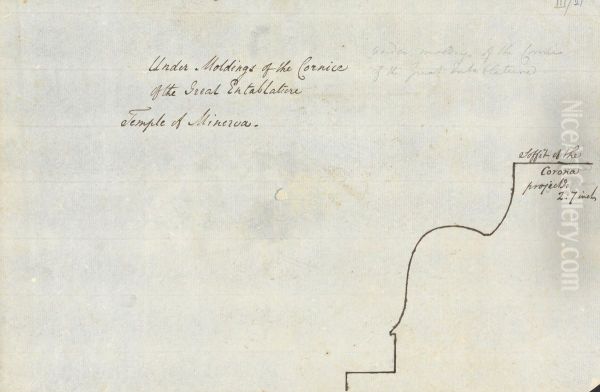 III/21
Under Moldings of the Cornice
of the Great Entablature
Temple of Minerva.
under moldings of the Cornice
of the great Entablature
Soffit of the
Corona
projects
2:7 inch
NiceArtGallery.com